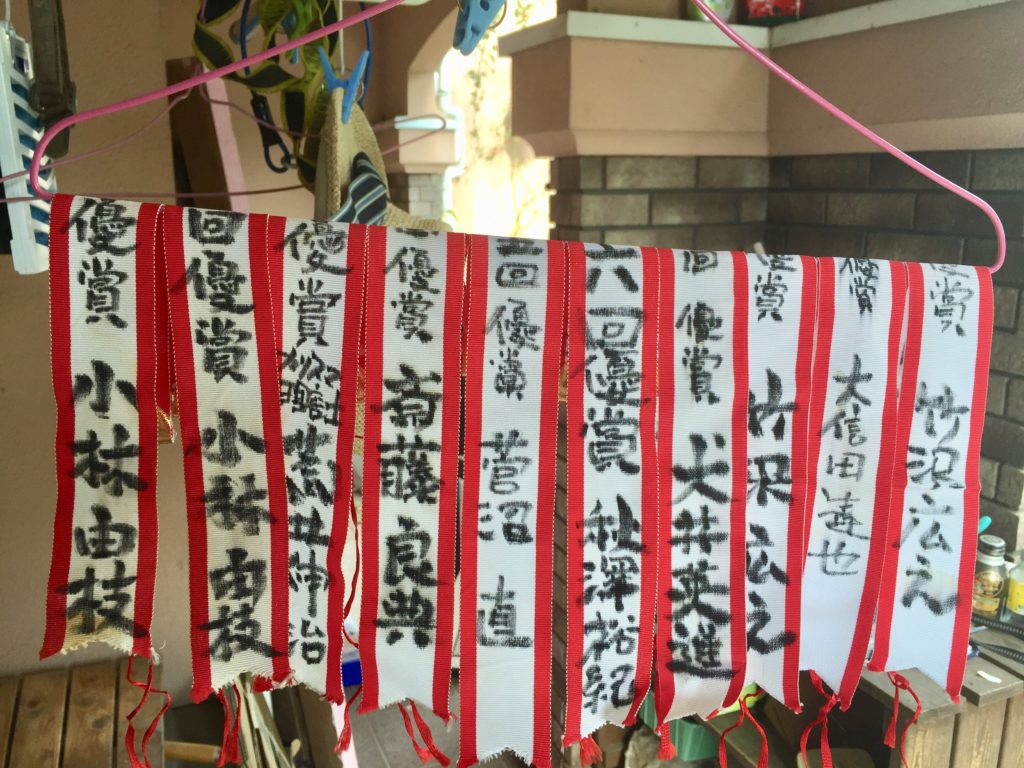 賞 竹沢広之
優賞 大信田達也
賞 竹沢広之
回優賞 犬井英進
六回優賞 秋澤裕紀
三回優賞 菅沼 直
優賞 斎藤良典
優賞 荒井伸治
回優賞 小林由枝
優賞 小林由枝